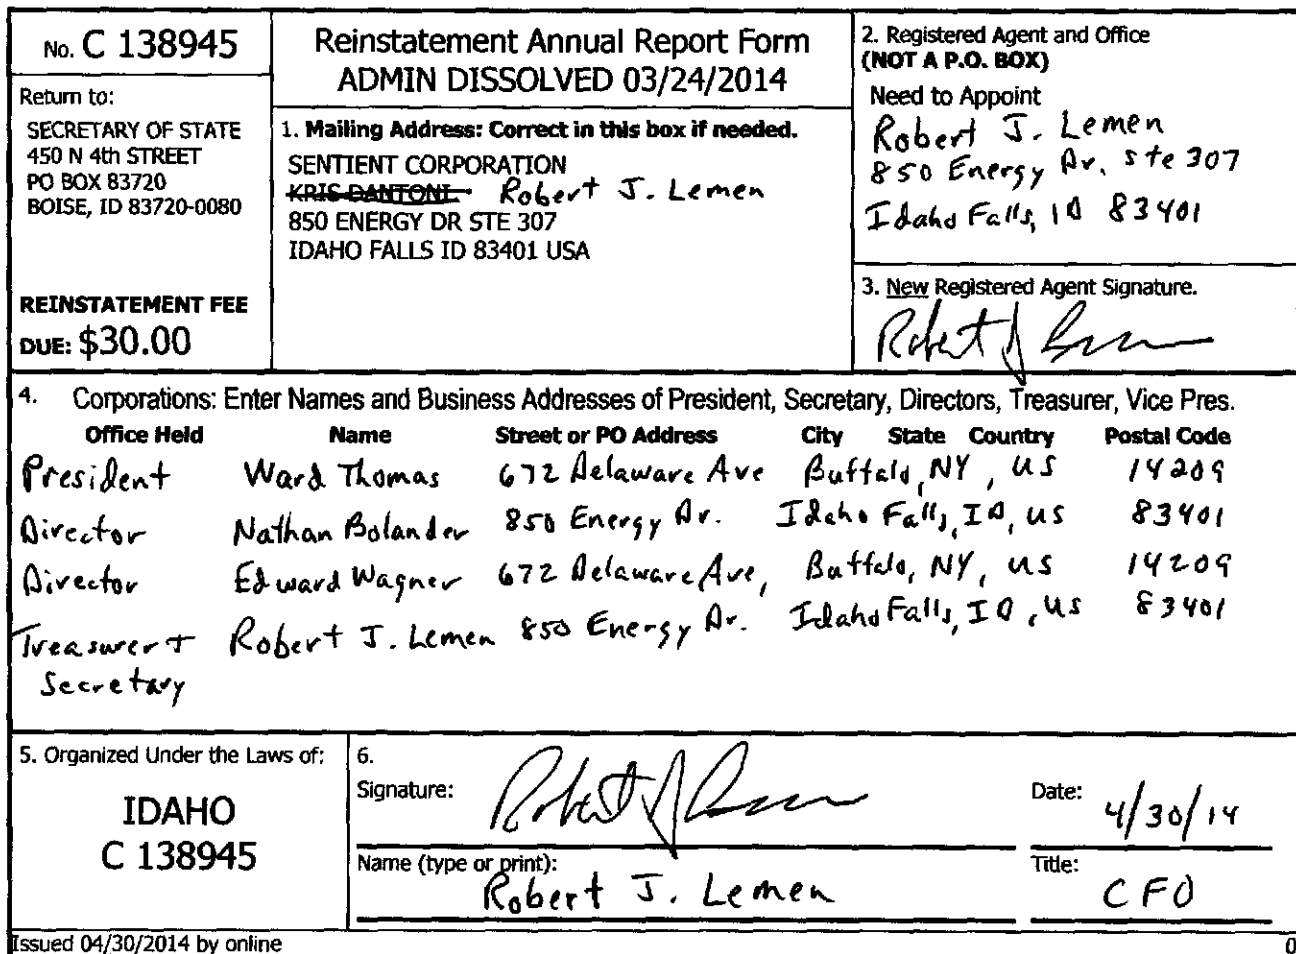 No. C 138945
Return to:
SECRETARY OF STATE
450 N 4th STREET
PO BOX 83720
BOISE, ID 83720-0080
REINSTATEMENT FEE
DUE: $30.00
Reinstatement Annual Report Form
ADMIN DISSOLVED 03/24/2014
1. Mailing Address: Correct in this box if needed.
SENTIENT CORPORATION
KRIS DANTONI Robert J. Lemen
850 ENERGY DR STE 307
IDAHO FALLS ID 83401 USA
2. Registered Agent and Office
(NOT A P.O. BOX)
Need to Appoint
Robert J. Lemen
850 Energy Dr. Ste 307
Idaho Falls, ID 83401
3. New Registered Agent Signature.
4. Corporations: Enter Names and Business Addresses of President, Secretary, Directors, Treasurer, Vice Pres.
Office Held Name Street or PO Address City State Country Postal Code
President Ward Thomas 672 Delaware Ave Buffalo, NY, US 14209
Director Nathan Bolander 850 Energy Dr. Idaho Falls, ID, US 83401
Director Edward Wagner 672 Delaware Ave, Buffalo, NY, US 14209
Treasurer + Robert J. Lemen 850 Energy Dr. Idaho Falls, ID, US 83401
Secretary
5. Organized Under the Laws of:
IDAHO
C 138945
6.
Signature:
Date: 4/30/14
Name (type or print): Robert J. Lemen
Title: CFO
Issued 04/30/2014 by online
0